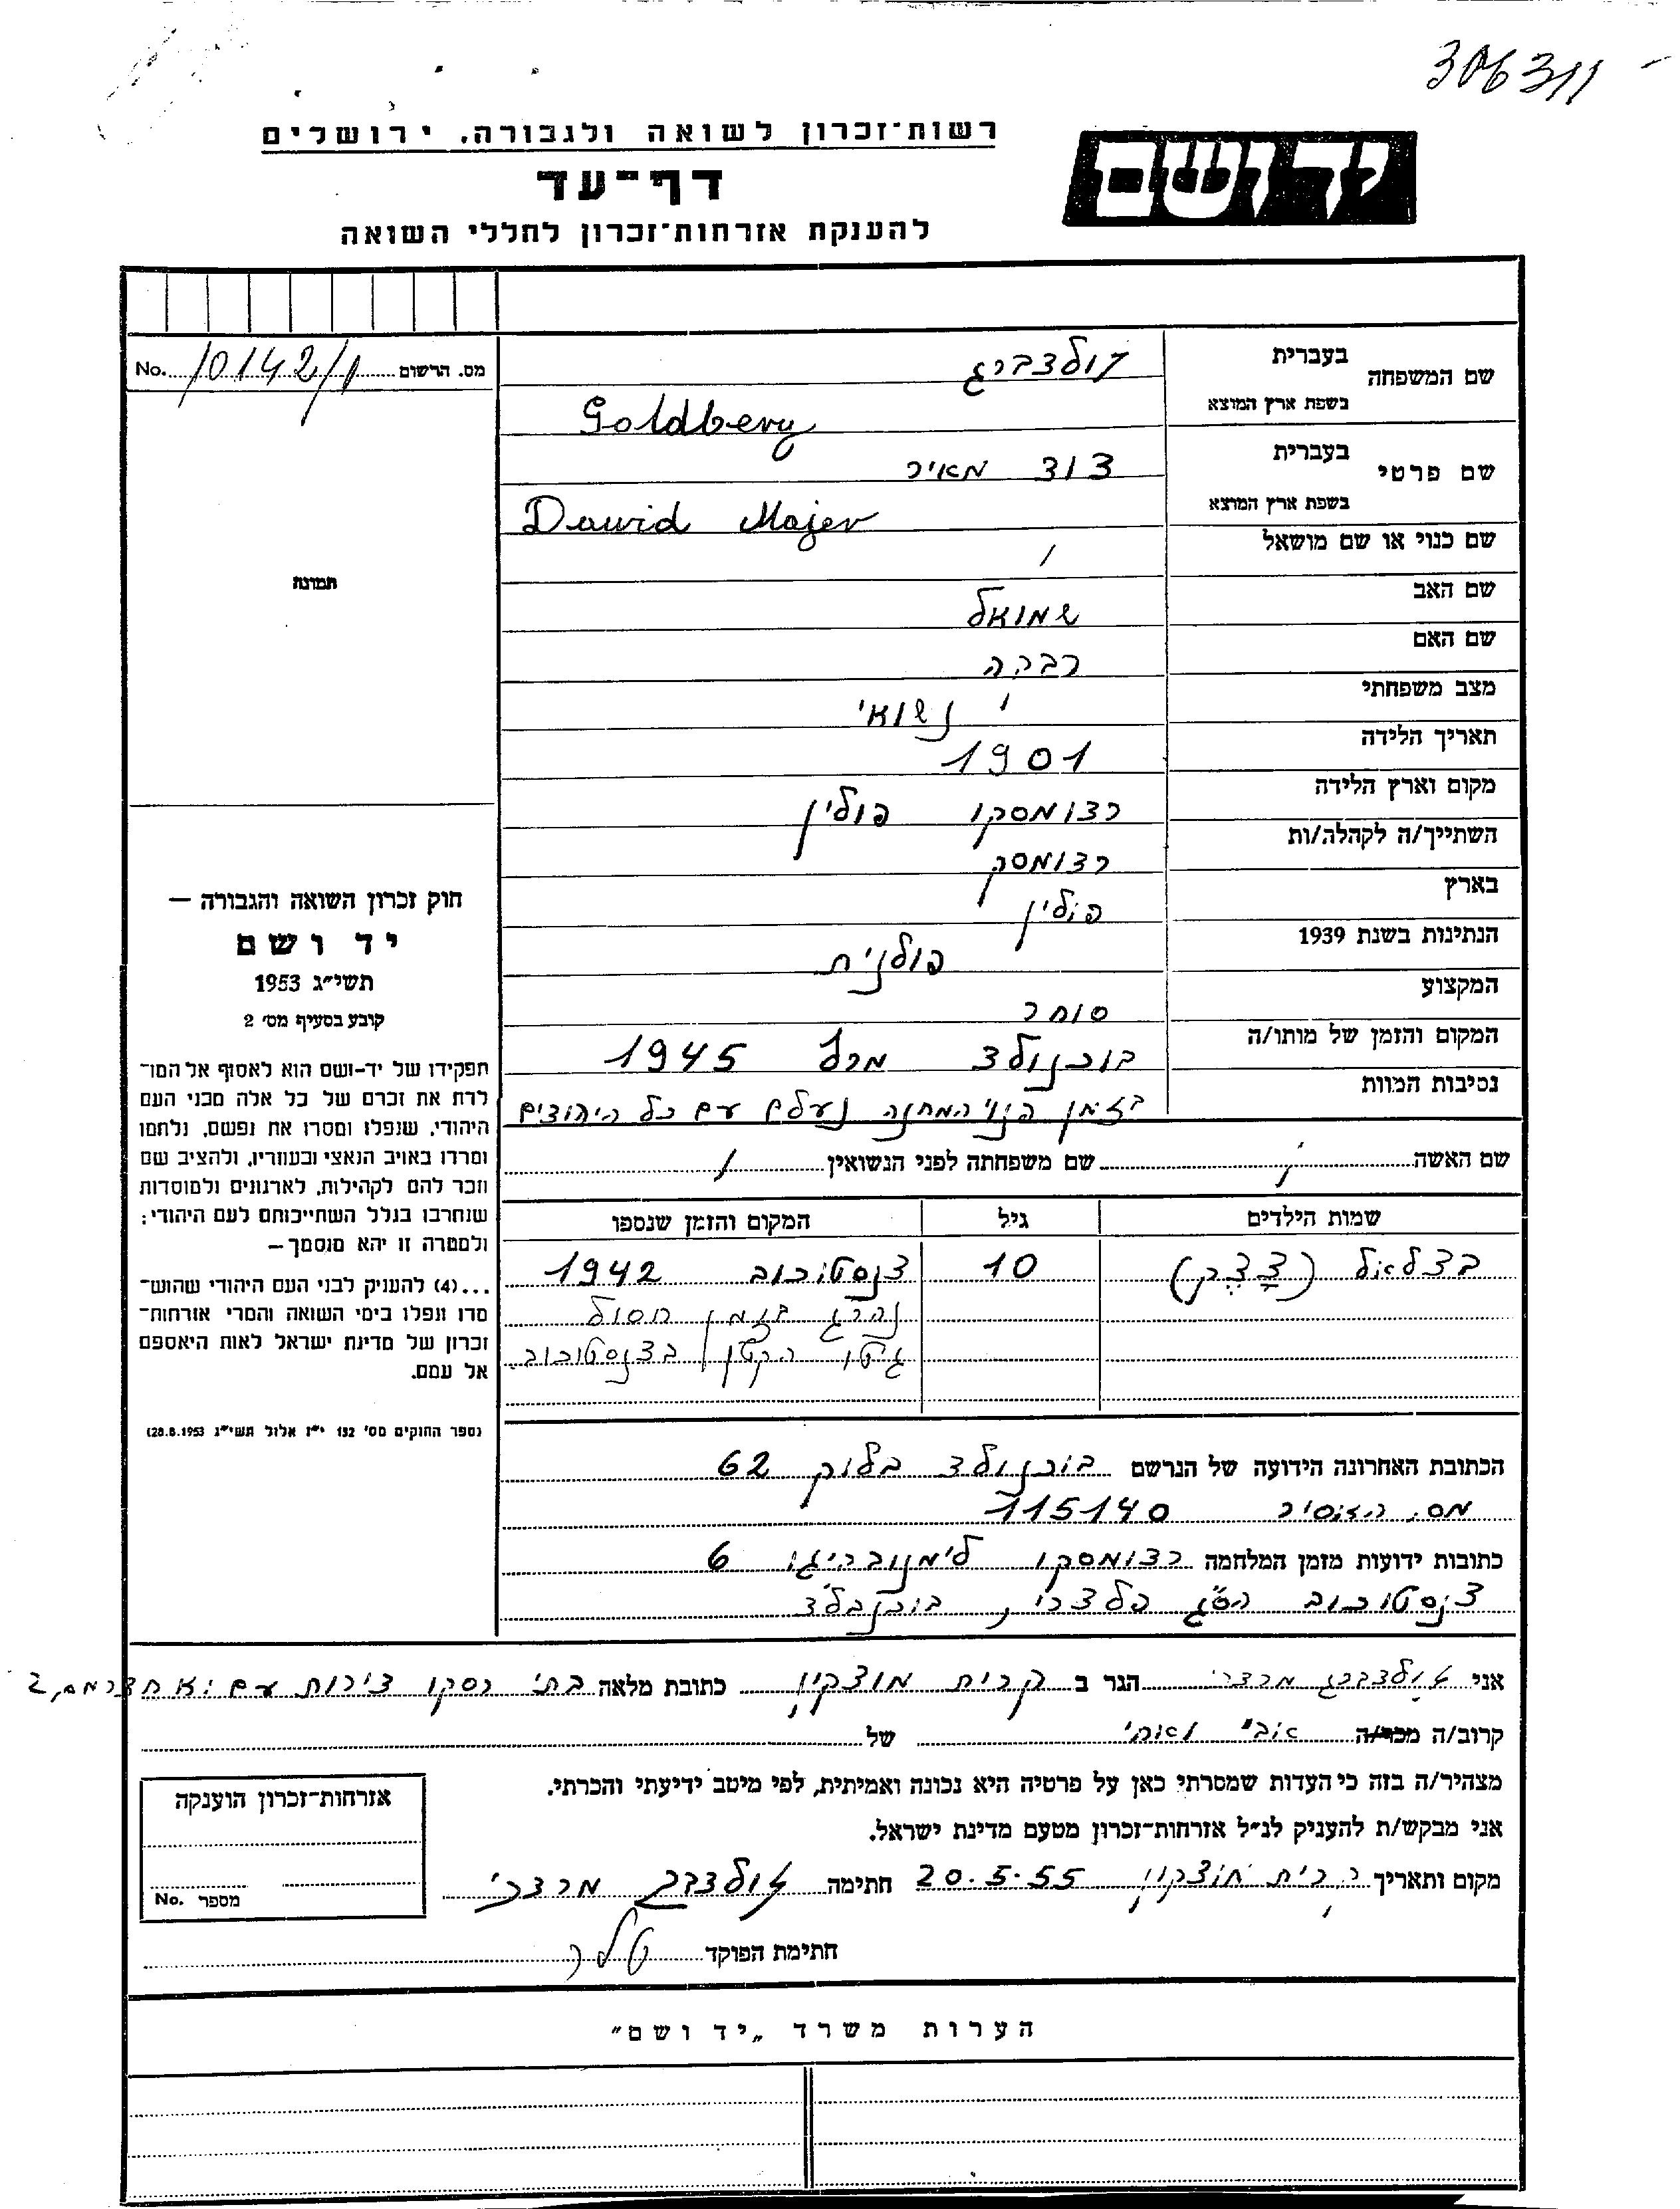 306311
רשות־זכרון לשואה ולגבורה, ירושלים
יד ושם
דף־עד
להענקת אזרחות־זכרון לחללי השואה
מס. הרשום 10142/1 No.
שם המשפחה בעברית גולדברג
בשפת ארץ המוצא Goldberg
שם פרטי בעברית דוד מאיר
בשפת ארץ המוצא Dawid Majer
שם כנוי או שם מושאל /
שם האב שמואל
שם האם רבקה
מצב משפחתי נשואי
תאריך הלידה 1901
מקום וארץ הלידה רדומסקו פולין
השתייך/ה לקהלה/ות רדומסק
בארץ פולין
הנתינות בשנת 1939 פולנית
המקצוע סוחר
המקום והזמן של מותו/ה בוכנולד מרץ 1945
נסיבות המוות בזמן פנוי המחנה נעלם עם כל היהודים
שם האשה / שם משפחתה לפני הנשואין /
שמות הילדים גיל המקום והזמן שנספו
בצלאל 10 צנסטוכוב 1942
נהרג בזמן חסול
גיטו הקטן בצנסטוכוב
הכתובת האחרונה הידועה של הנרשם בוכנולד בלוק 62
מס. האסיר 115140
כתובות ידועות מזמן המלחמה רדומסקו 6
צנסטוכוב בוכנבלד
תמונה
חוק זכרון השואה והגבורה —
יד ושם
תשי״ג 1953
קובע בסעיף מס׳ 2
תפקידו של יד-ושם הוא לאסוף אל המו־
לדת את זכרם של כל אלה מבני העם
היהודי, שנפלו ומסרו את נפשם, נלחמו
ומרדו באויב הנאצי ובעוזריו, ולהציב שם
וזכר להם לקהילות, לארגונים ולמוסדות
שנחרבו בגלל השתייכותם לעם היהודי;
ולמטרה זו יהא מוסמך—
...(4) להעניק לבני העם היהודי שהוש־
מדו ונפלו בימי השואה והמרי אזרחות־
זכרון של מדינת ישראל לאות היאספם
אל עמם.
(ספר החוקים מס׳ 132 י״ז אלול תשי״ג 28.8.1953)
אני גולדברג מרדכי הגר ב קרית מוצקין כתובת מלאה בתי רסקו דירות עם
קרוב/ה מכר/ה אבי של
מצהיר/ה בזה כי העדות שמסרתי כאן על פרטיה היא נכונה ואמיתית, לפי מיטב ידיעתי והכרתי.
אני מבקש/ת להעניק לנ״ל אזרחות־זכרון מטעם מדינת ישראל.
מקום ותאריך קרית מוצקין 20.5.55 חתימה גולדברג מרדכי
חתימת הפוקד
אזרחות־זכרון הוענקה
מספר No.
הערות משרד „יד ושם”